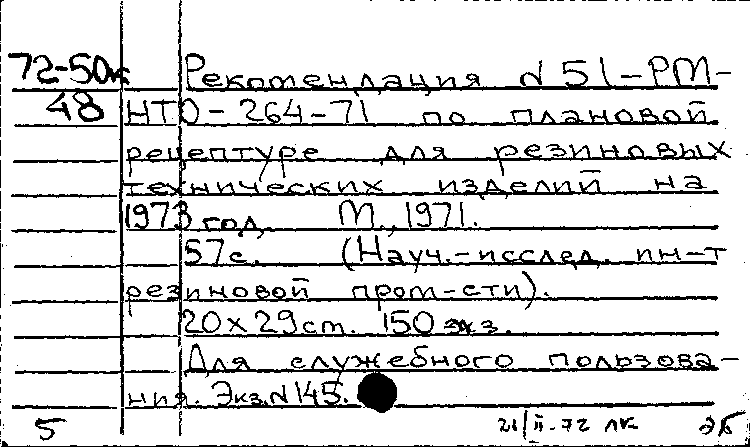 72-50к Рекомендация N 51-РМ-
48 НТО-264-71 по плановой
рецептуре для резиновых
технических изделий на
1973 год. М., 1971.
57с. (Науч.-исслед. ин-т
резиновой пром-сти).
20х29cm. 150 экз.
Для служебного пользова-
ния. Экз.N145.
5 21/II-72 ЛК ЭБ